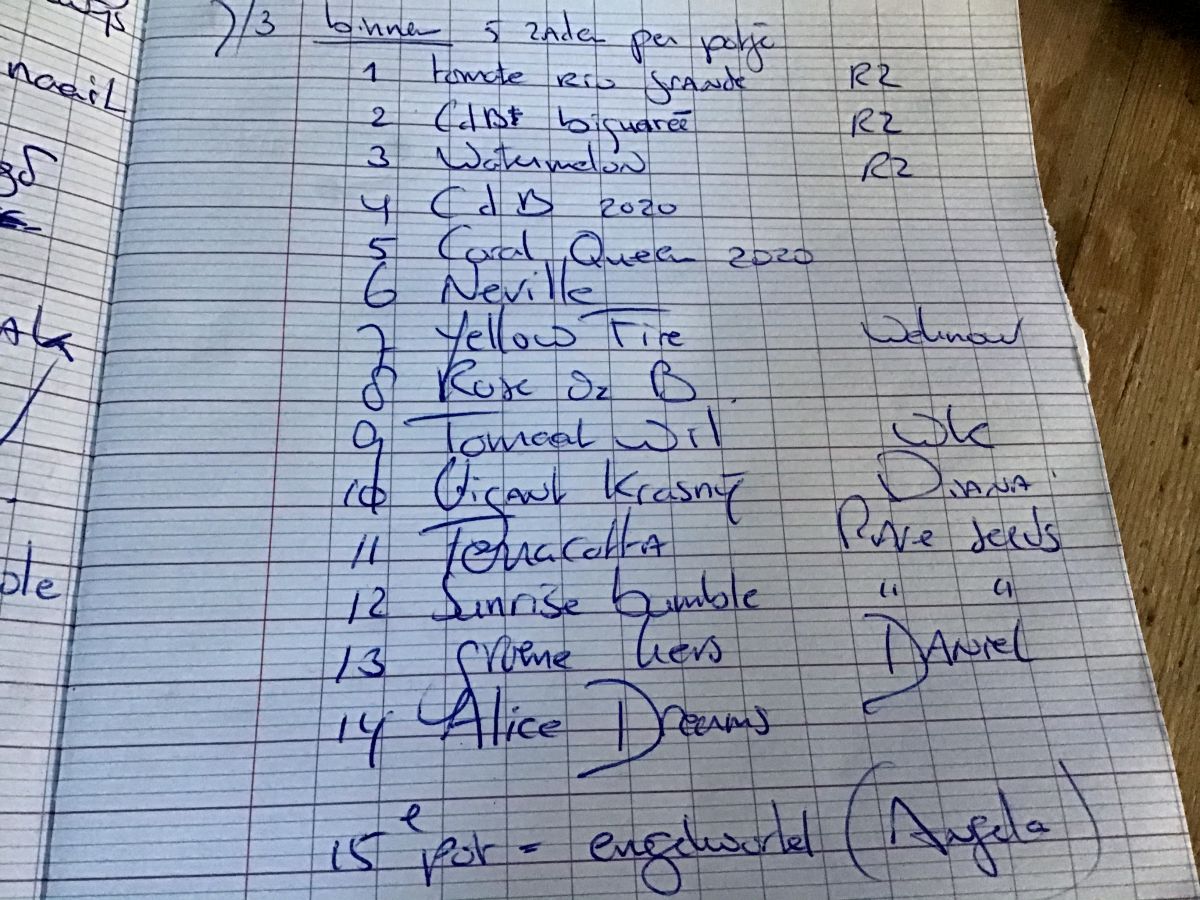 7/3 binnen 5 zaden per potje
1 tomate Rio grande R2
2 CdB bigarrée R2
3 Watermelon R2
4 CdB 2020
5 Coral Queen 2020
6 Neville
7 Yellow Fire
8 Rose Oz B.
9 Tomaat Wil
10 Gigant Krasny Diana
11 Terracotta Rare seeds
12 Sunrise bumble " "
13 groene kers Daniel
14 Alice Dreams
15e pot = engelwortel (Angela)
naail
ple